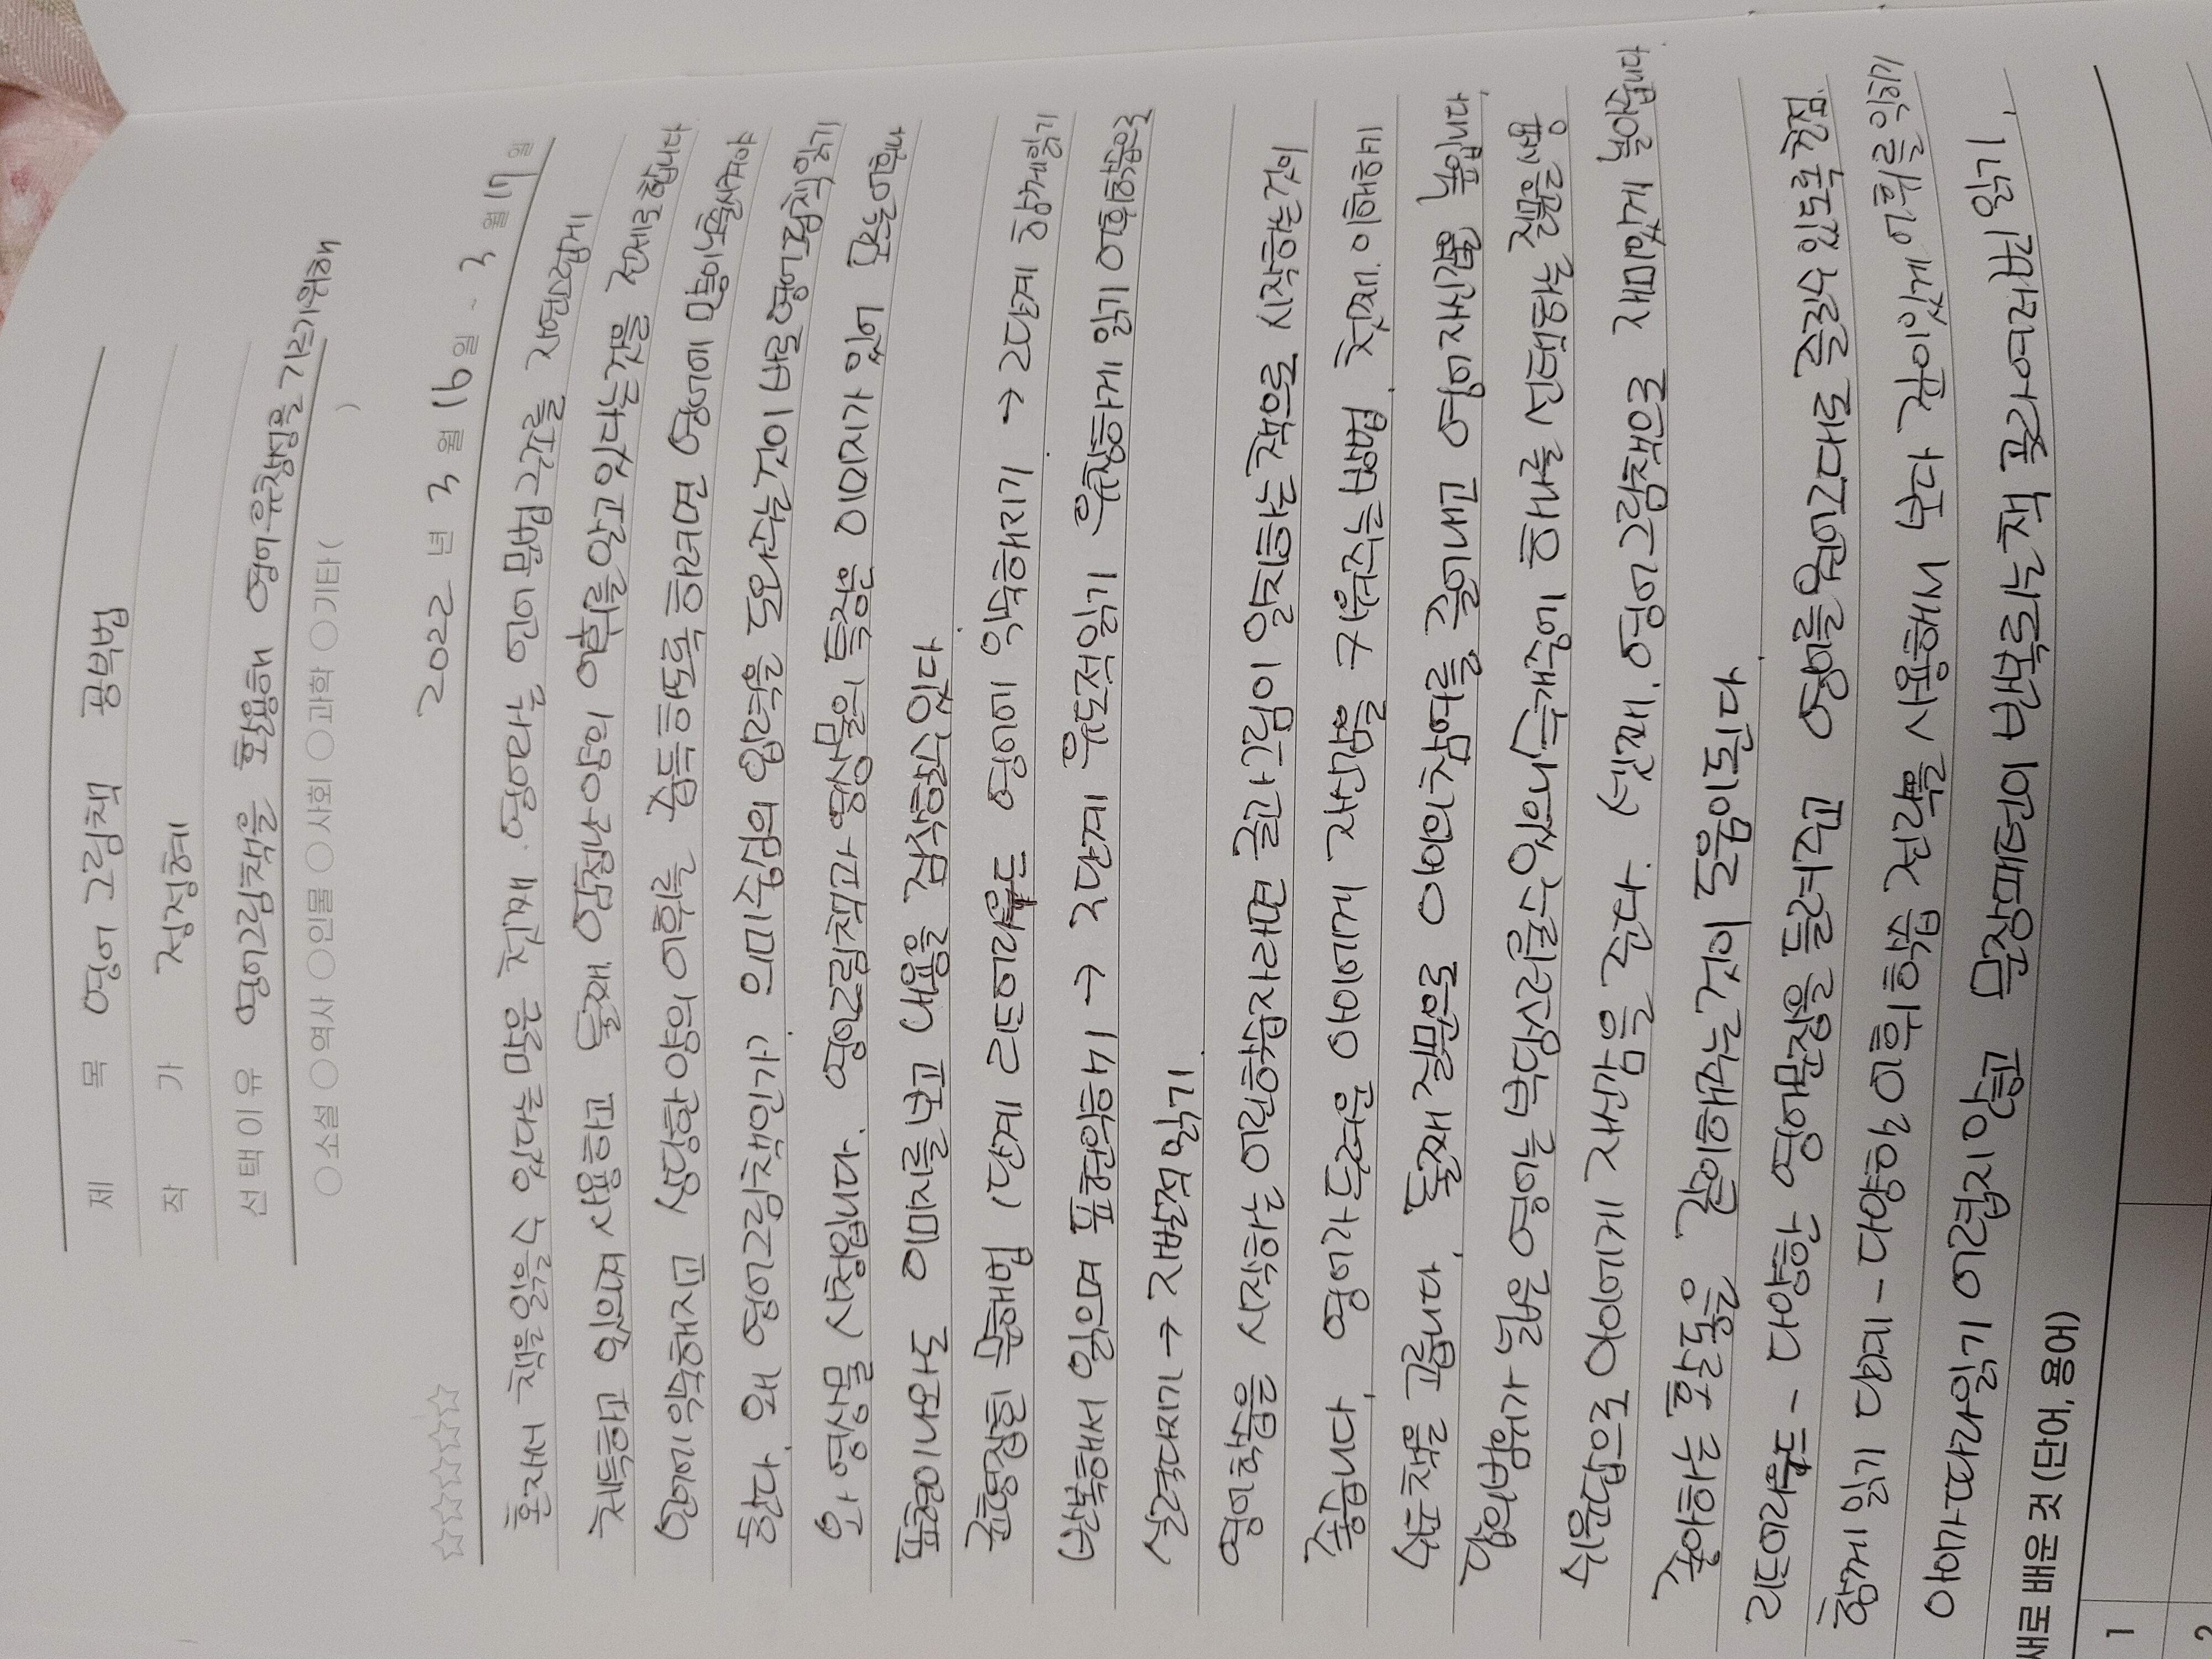 제 목 영어 그림책 공부법
작 가 정정혜
선택이유 영어그림책을 활용해 영어유창성을 기르기위해
○소설 ○역사 ○인물 ○사회 ○과학 ○기타 ( )
☆☆☆☆☆ 2022 년 3 월 16 일 - 3 월 17 일
혼자서 책을 읽을 수 있다는 말은 첫째. 영어라는 언어 문법구조를 자연스럽게
체득하고 있으며 사용하고 둘째. 엄청난 양의 어휘를 알고 있다는 것을 전제로 합니다
언어에 익숙해지고 상당한 양의 어휘를 습득하도록 하려면 영어에 많이 노출시켜야
한다. 왜 영어그림책인가? 의미중심의 입력을 도와주는 것이 바로 영어그림책 읽기
와 영상물 시청입니다. 영어그림책과 영상물의 특징은 이미지가 있어 모르는 어휘나
표현이 나와도 이미지를 보고 내용을 짐작할 수 있다.
균형잡힌 문해법 1단계 리드어라우드 영어에 익숙해지기. → 2단계 함께읽기
반복해서 읽으며 표현익히기 → 3단계 유도적읽기 유창하게 읽기 어휘학습으로
실력다지기 → 자발적 읽기.
영어학습을 시작하는 어린학습자라면 글과 그림이 일치하는 책으로 시작하는 것이
좋습니다. 영어가 두려운 아이에게 자신감을 키워주는 방법. 첫째. 이해하기
쉬운 책을 고릅니다. 둘째 질문으로 아이의 참여를 끌어내고 영어 자신감을 높입니다.
답의 범위가 넓은 영어는 부담스러울 수 있으니 두개중에 하나를 선택하는 질문을 사용
쉬운답으로 아이에게 자신감을 준다. 셋째. 영어그림책으로 재미있게 놀아줍니다.
좋아하는 활동을 같이해주는 것이 도움이된다.
리드어라우드 - 다양한 영어문장을 들려주고 영어를 원어그대로 즐길수 있도록 초점.
함께 읽기 단계 - 다양한 어휘 학습 전략을 사용해서 보다 깊이있게 어휘를 익히기
아이가 따라읽기 어렵지 않고 문장패턴이 반복되는 책 골라 여러번 읽기.
새로 배운 것 (단어, 용어)
1
2